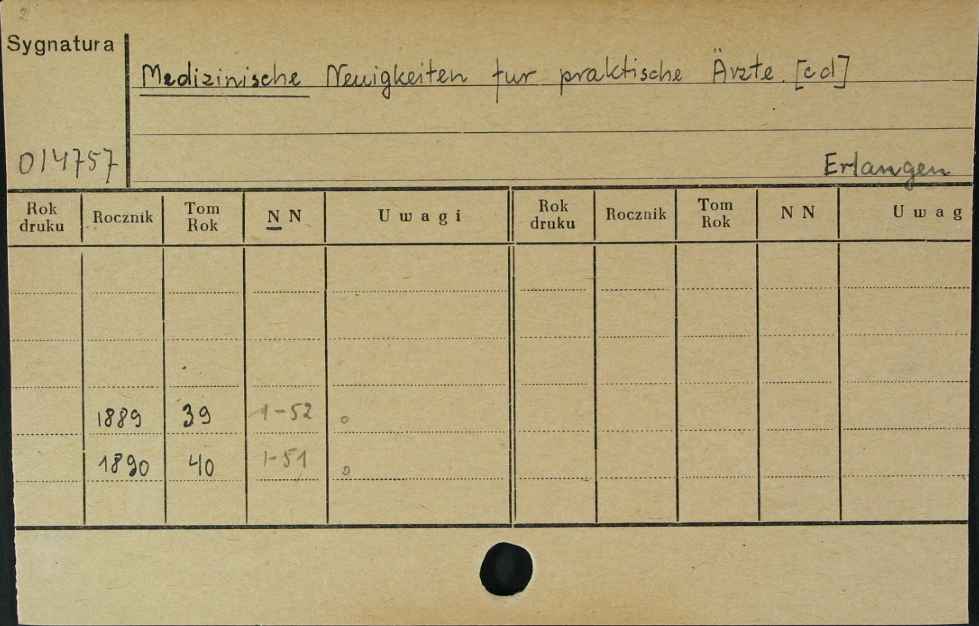 2
Sygnatura
Medizinische Neuigkeiten fur praktische Ärzte. [cd]
014757
Erlangen
Rok druku Rocznik Tom Rok N N Uwagi Rok druku Rocznik Tom Rok N N Uwag
1889 39 1-52 o
1890 40 1-51 o